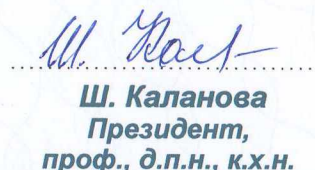 Ш. Каланова
Президент,
проф., д.п.н., к.х.н.